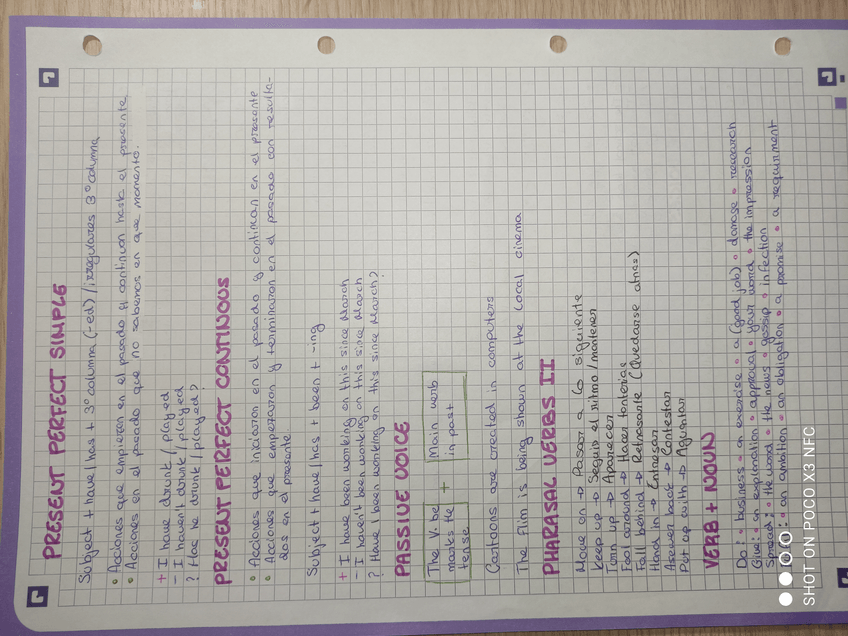 PRESENT PERFECT SIMPLE
Subject + have/has + 3º column (-ed) /irregulares 3º columna
• Acciones que empiezan en el pasado y continuan hasta el presente
• Acciones en el pasado que no sabemos en que momento.
+ I have drunk / played
- I haven't drunk / played
? Has he drunk / played?
PRESENT PERFECT CONTINOUS
• Acciones que inician en el pasado y continuan en el presente
• Acciones que empezaron y terminaron en el pasado con resulta-
dos en el presente
Subject + have/has + been + -ing
+ I have been working on this since March
- I haven't been working on this since March
? Have I been working on this since March?
PASSIVE VOICE
The V. be marks the tense + Main verb in past
Cartoons are created in computers
The film is being shown at the local cinema
PHARASAL VERBS II
Move on → Pasar a lo siguiente
Keep up → Seguir el ritmo / mantener
Turn up → Aparecer
Fool around → Hacer tonterias
Fall behind → Retrasarte (Quedarse atras)
Hand in → Entregar
Answer back → Contestar
Put up with → Aguantar
VERB + NOUN
Do: • business • an exercise • a (good job) • damage • research
Give: • an explanation • approval • your word • the impression
Spread: • the word • the news • gossip • infection
• an ambition • an obligation • a promise • a requirment
SHOT ON POCO X3 NFC